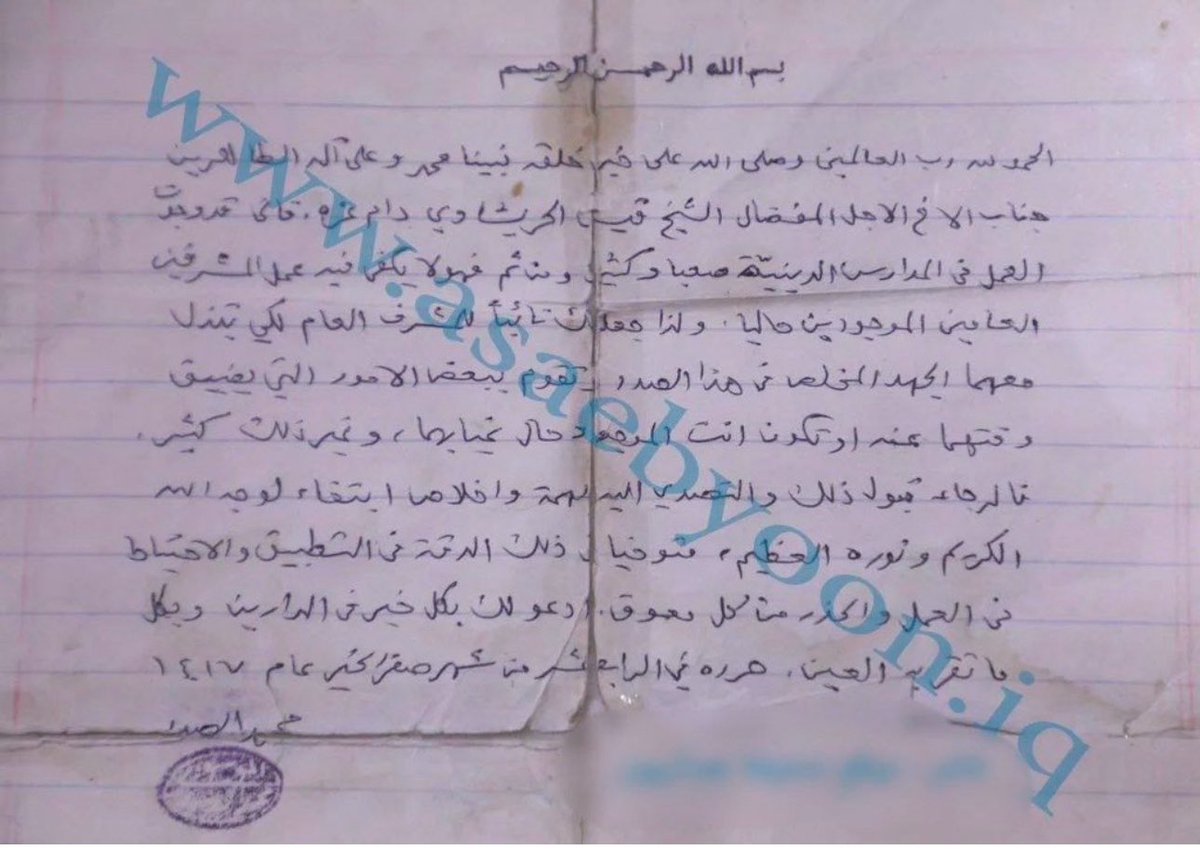 بسم الله الرحمن الرحيم
الحمد لله رب العالمين وصلى الله على خير خلقه نبينا محمد وعلى آله الطاهرين
جناب الاخ الاجل المفضال الشيخ قيس الخزعلي دام عزه. فاني قد وجدت
العمل في المدارس الدينية صعبا وكثيرا ومن ثم فهو لا يكفي فيه عمل المشرفين
العامين الموجودين حاليا. ولذا جعلتك نائباً للمشرف العام لكي تبذل
معهما الجهد المخلص في هذا الصدد وتقوم ببعض الامور التي يضيق
وقتهما عنه او تكون انت الموجود حال غيابهما، وغير ذلك كثير.
فالرجاء قبول ذلك والتصدي اليه بهمة واخلاص ابتغاء لوجه الله
الكريم ونوره العظيم، متوخيا في ذلك الدقة في التطبيق والاحتياط
في العمل والحذر من كل معوق. ادعو لك بكل خير في الدارين وبكل
ما تقر به العين. حرره في الرابع عشر من شهر صفر الخير عام ١٤١٧
محمد الصدر
www.asaebyoon.iq